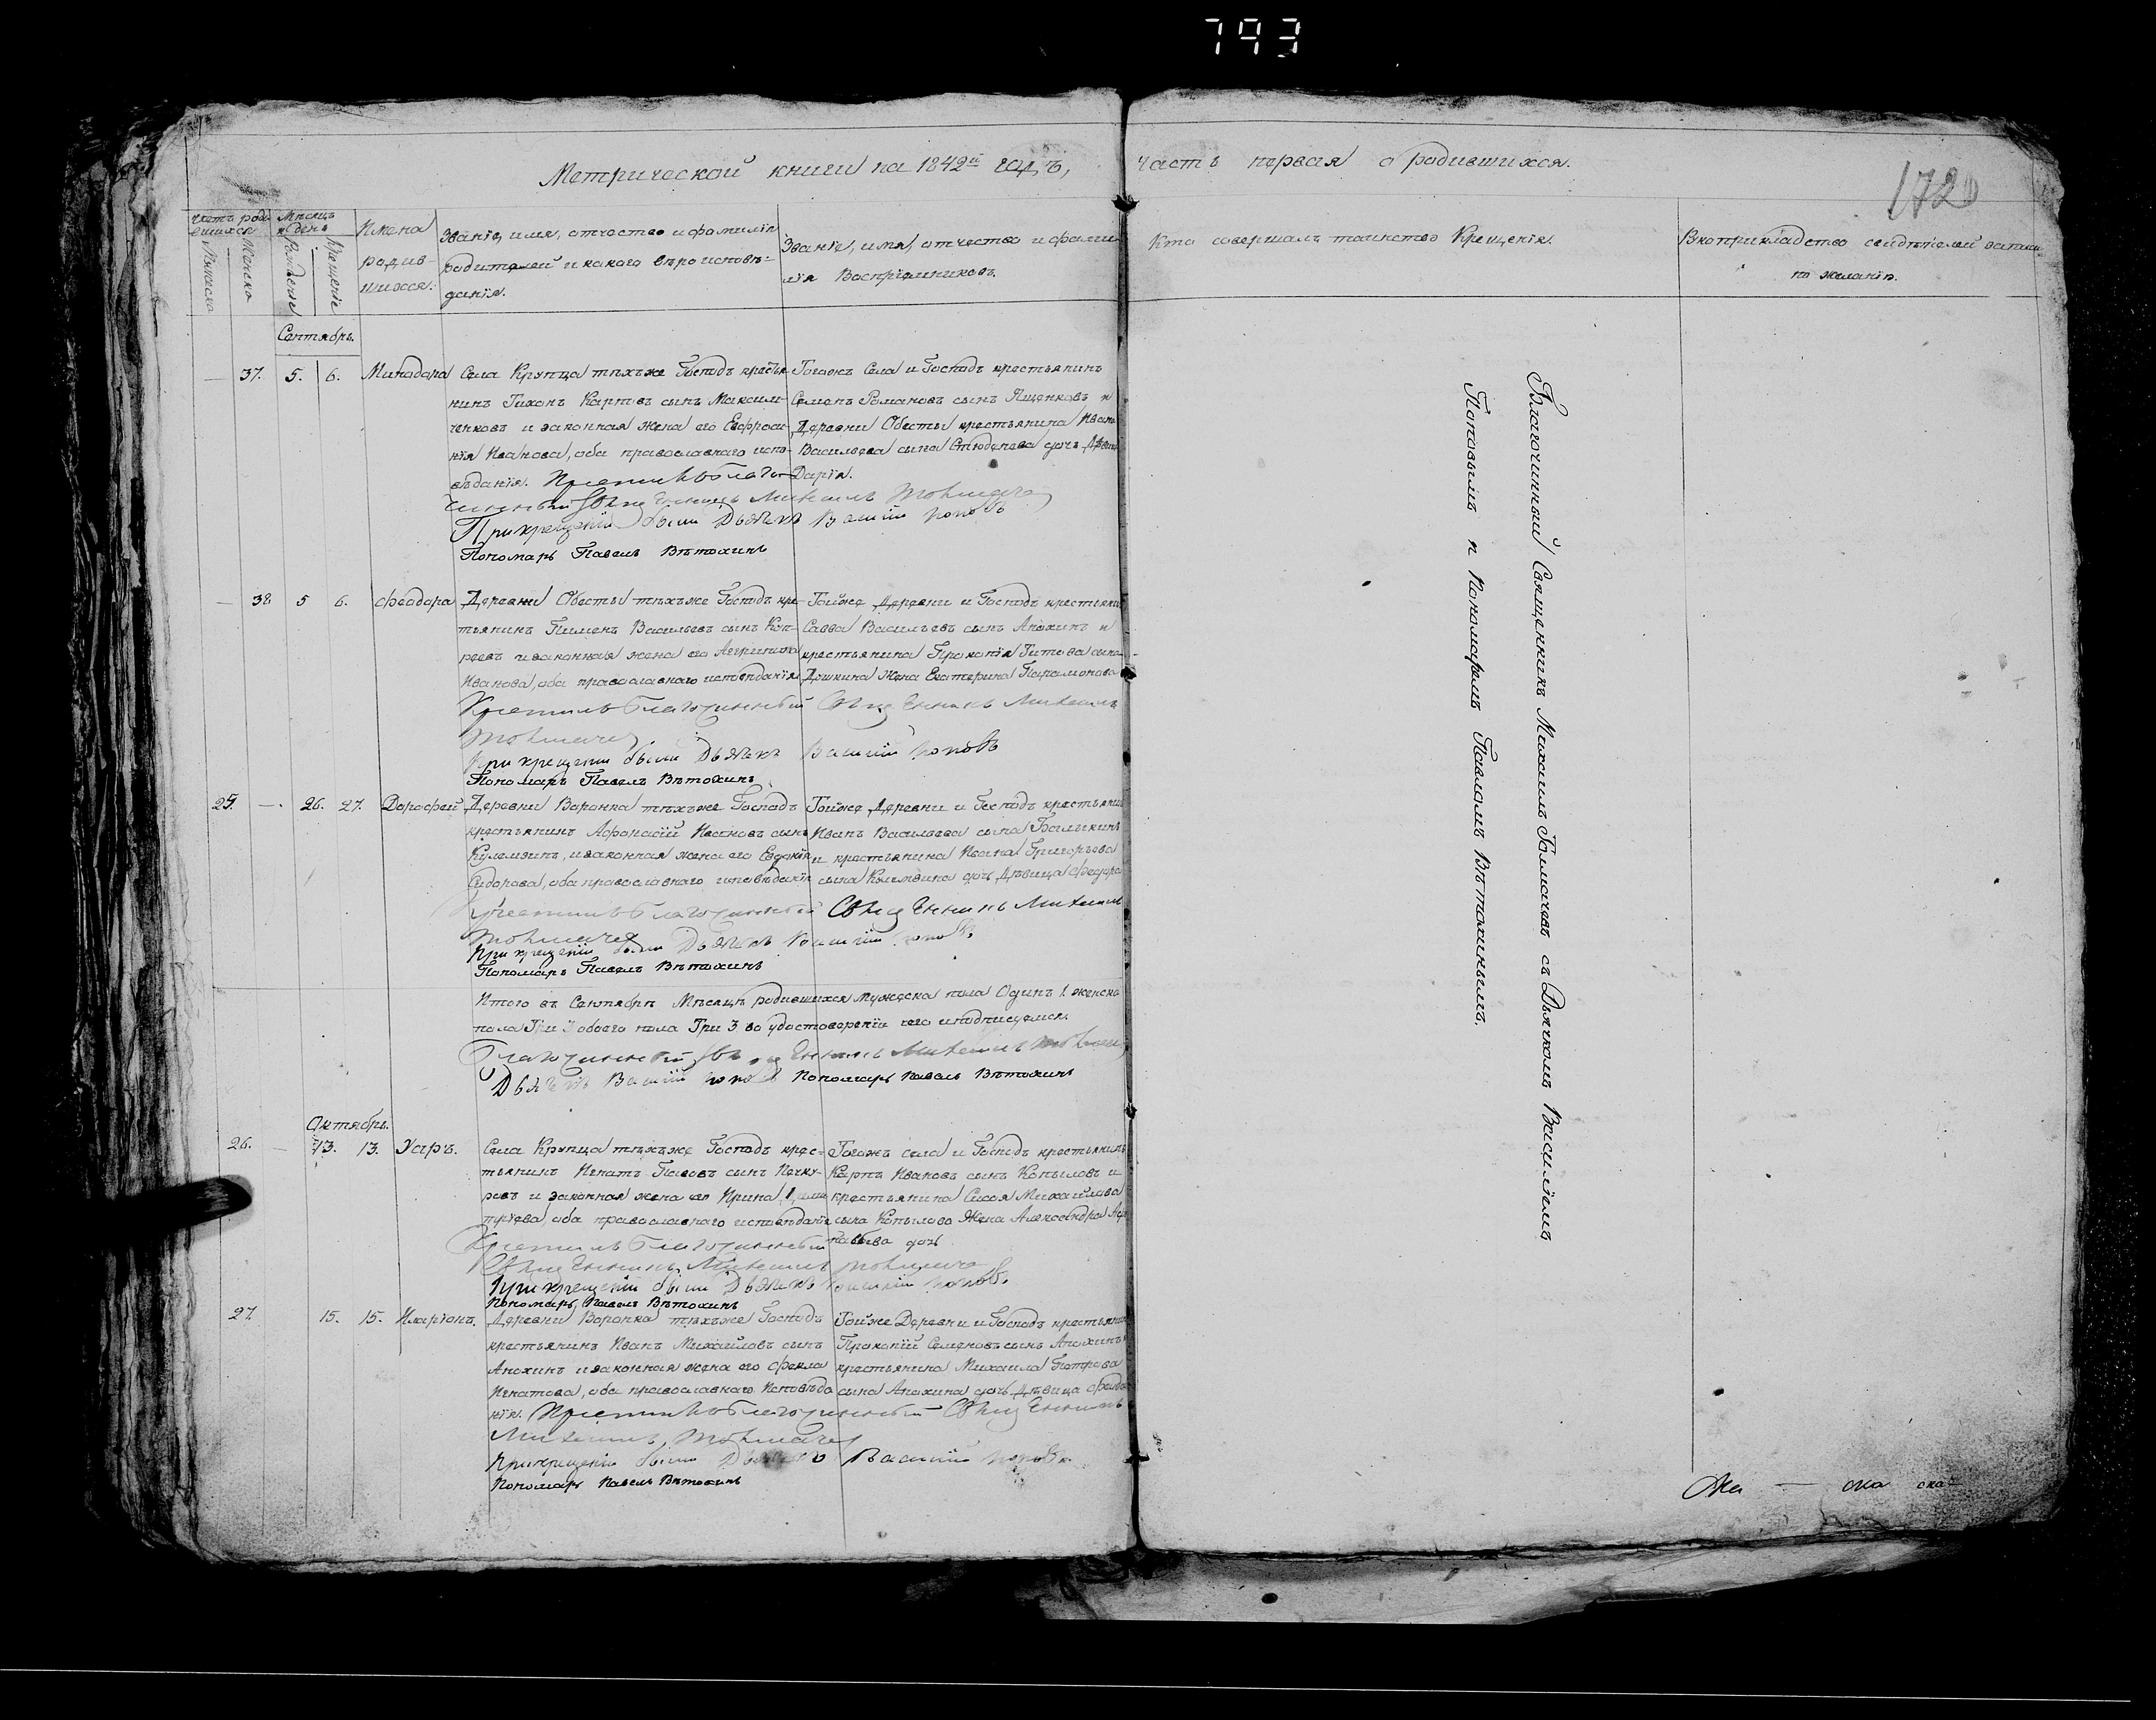 793
Метрической книги на 1842й годъ, часть первая о родившихся.
172
Счетъ родившихся
Мужеска
Женска
Мѣсяцъ и день
Рожденіе
Крещеніе
Имена родив-
шихся.
Званіе, имя, отчество и фамилія
родителей и какого вѣроисповѣ-
данія.
Званіе, имя, отчество и фами-
лія Воспріемниковъ.
Кто совершалъ таинство Крещенія.
Рукоприкладство свидѣтелей записи
по желанію.
Сентябрь.
— 37. 5. 6. Минодора
Села Крупца тѣхъже Господъ крестья-
нинъ Тихонъ Карповъ сынъ Максим-
ченковъ и законная жена его Евфроси-
нія Иванова, оба православнаго испо-
вѣданія. Крестилъ Благо-
чинный Священникъ Михаилъ Толмачев
При крещеніи были Дьячекъ Василій Поповъ
Пономарь Павелъ Вѣтохинъ
Тогожъ Села и Господъ крестьянинъ
Семенъ Романовъ сынъ Ященковъ и
Деревни Обесты крестьянина Ивана
Васильева сына Стюденева дочь Дѣвица
Дарія.
— 38 5 6. Феодора
Деревни Обесты тѣхъже Господъ кре-
тьянинъ Пименъ Васильевъ сынъ Коп-
реевъ и законная жена его Агрипина
Иванова, оба православнаго исповѣданія
Крестилъ Благочинный Священникъ Михаилъ
Толмачев
При крещеніи были Дьячекъ Василій Поповъ
Пономарь Павелъ Вѣтохинъ
Тойже Деревни и Господъ крестьянинъ
Савва Васильевъ сынъ Анохинъ и
крестьянина Прокопія Титова сына
Дошкина Жена Екатерина Парамонова
25. — 26. 27. Дорофей
Деревни Воронка тѣхъже Господъ
крестьянинъ Афонасій Ивановъ сынъ
Кулемзинъ, и законная жена его Евдокія
Сидорова, оба православнаго исповѣданія
Крестилъ Благочинный Священникъ Михаилъ
Толмачев
При крещеніи были Дьячекъ Василій Поповъ
Пономарь Павелъ Вѣтохинъ
Тойже Деревни и Господъ крестьянинъ
Иванъ Васильева сына Балыкинъ
и крестьянина Ивана Григорьева
сына дочь Дѣвица Федора
Итого въ Сентябрѣ Мѣсяцѣ родившихся мужеска пола Одинъ 1 женска
пола Три 3 обоего пола Три 3 во удостовереніи чего и подписуемся.
Благочинный Священникъ Михаилъ Толмачев
Дьячекъ Василій Поповъ Пономарь Павелъ Вѣтохинъ
Октябрь.
26. — 13. 13. Уаръ.
Села Крупца тѣхъже Господъ крес-
тьянинъ Игнатъ сынъ
и законная жена его Ирина Дими-
тріева, оба православнаго исповѣданія
Крестилъ Благочинный
Священникъ Михаилъ Толмачев
При крещеніи были Дьячекъ Василій Поповъ.
Пономарь Павелъ Вѣтохинъ
Тогожъ села и Господъ крестьянинъ
Карпъ Ивановъ сынъ Копыловъ и
крестьянина Сисоя Михайлова
сына Копылова Жена Александра
дочь
27. 15. 15. Иларіонъ.
Деревни Воронка тѣхъже Господъ
крестьянинъ Иванъ Михайловъ сынъ
Анохинъ и законная жена его Фекла
Игнатова, оба православнаго Исповѣда
нія. Крестилъ Благочинный Священникъ
Михаилъ Толмачев
При крещеніи были Дьячекъ Василій Поповъ.
Пономарь Павелъ Вѣтохинъ
Тойже Деревни и Господъ крестьянинъ
Прокопій Семеновъ сынъ Анохинъ
крестьянина Михаила Петрова
сына Анохина дочь Дѣвица
Благочинный Священникъ Михаилъ Толмачевъ съ Дьячкомъ Василіемъ
Поповымъ и Пономаремъ Павломъ Вѣтохинымъ.